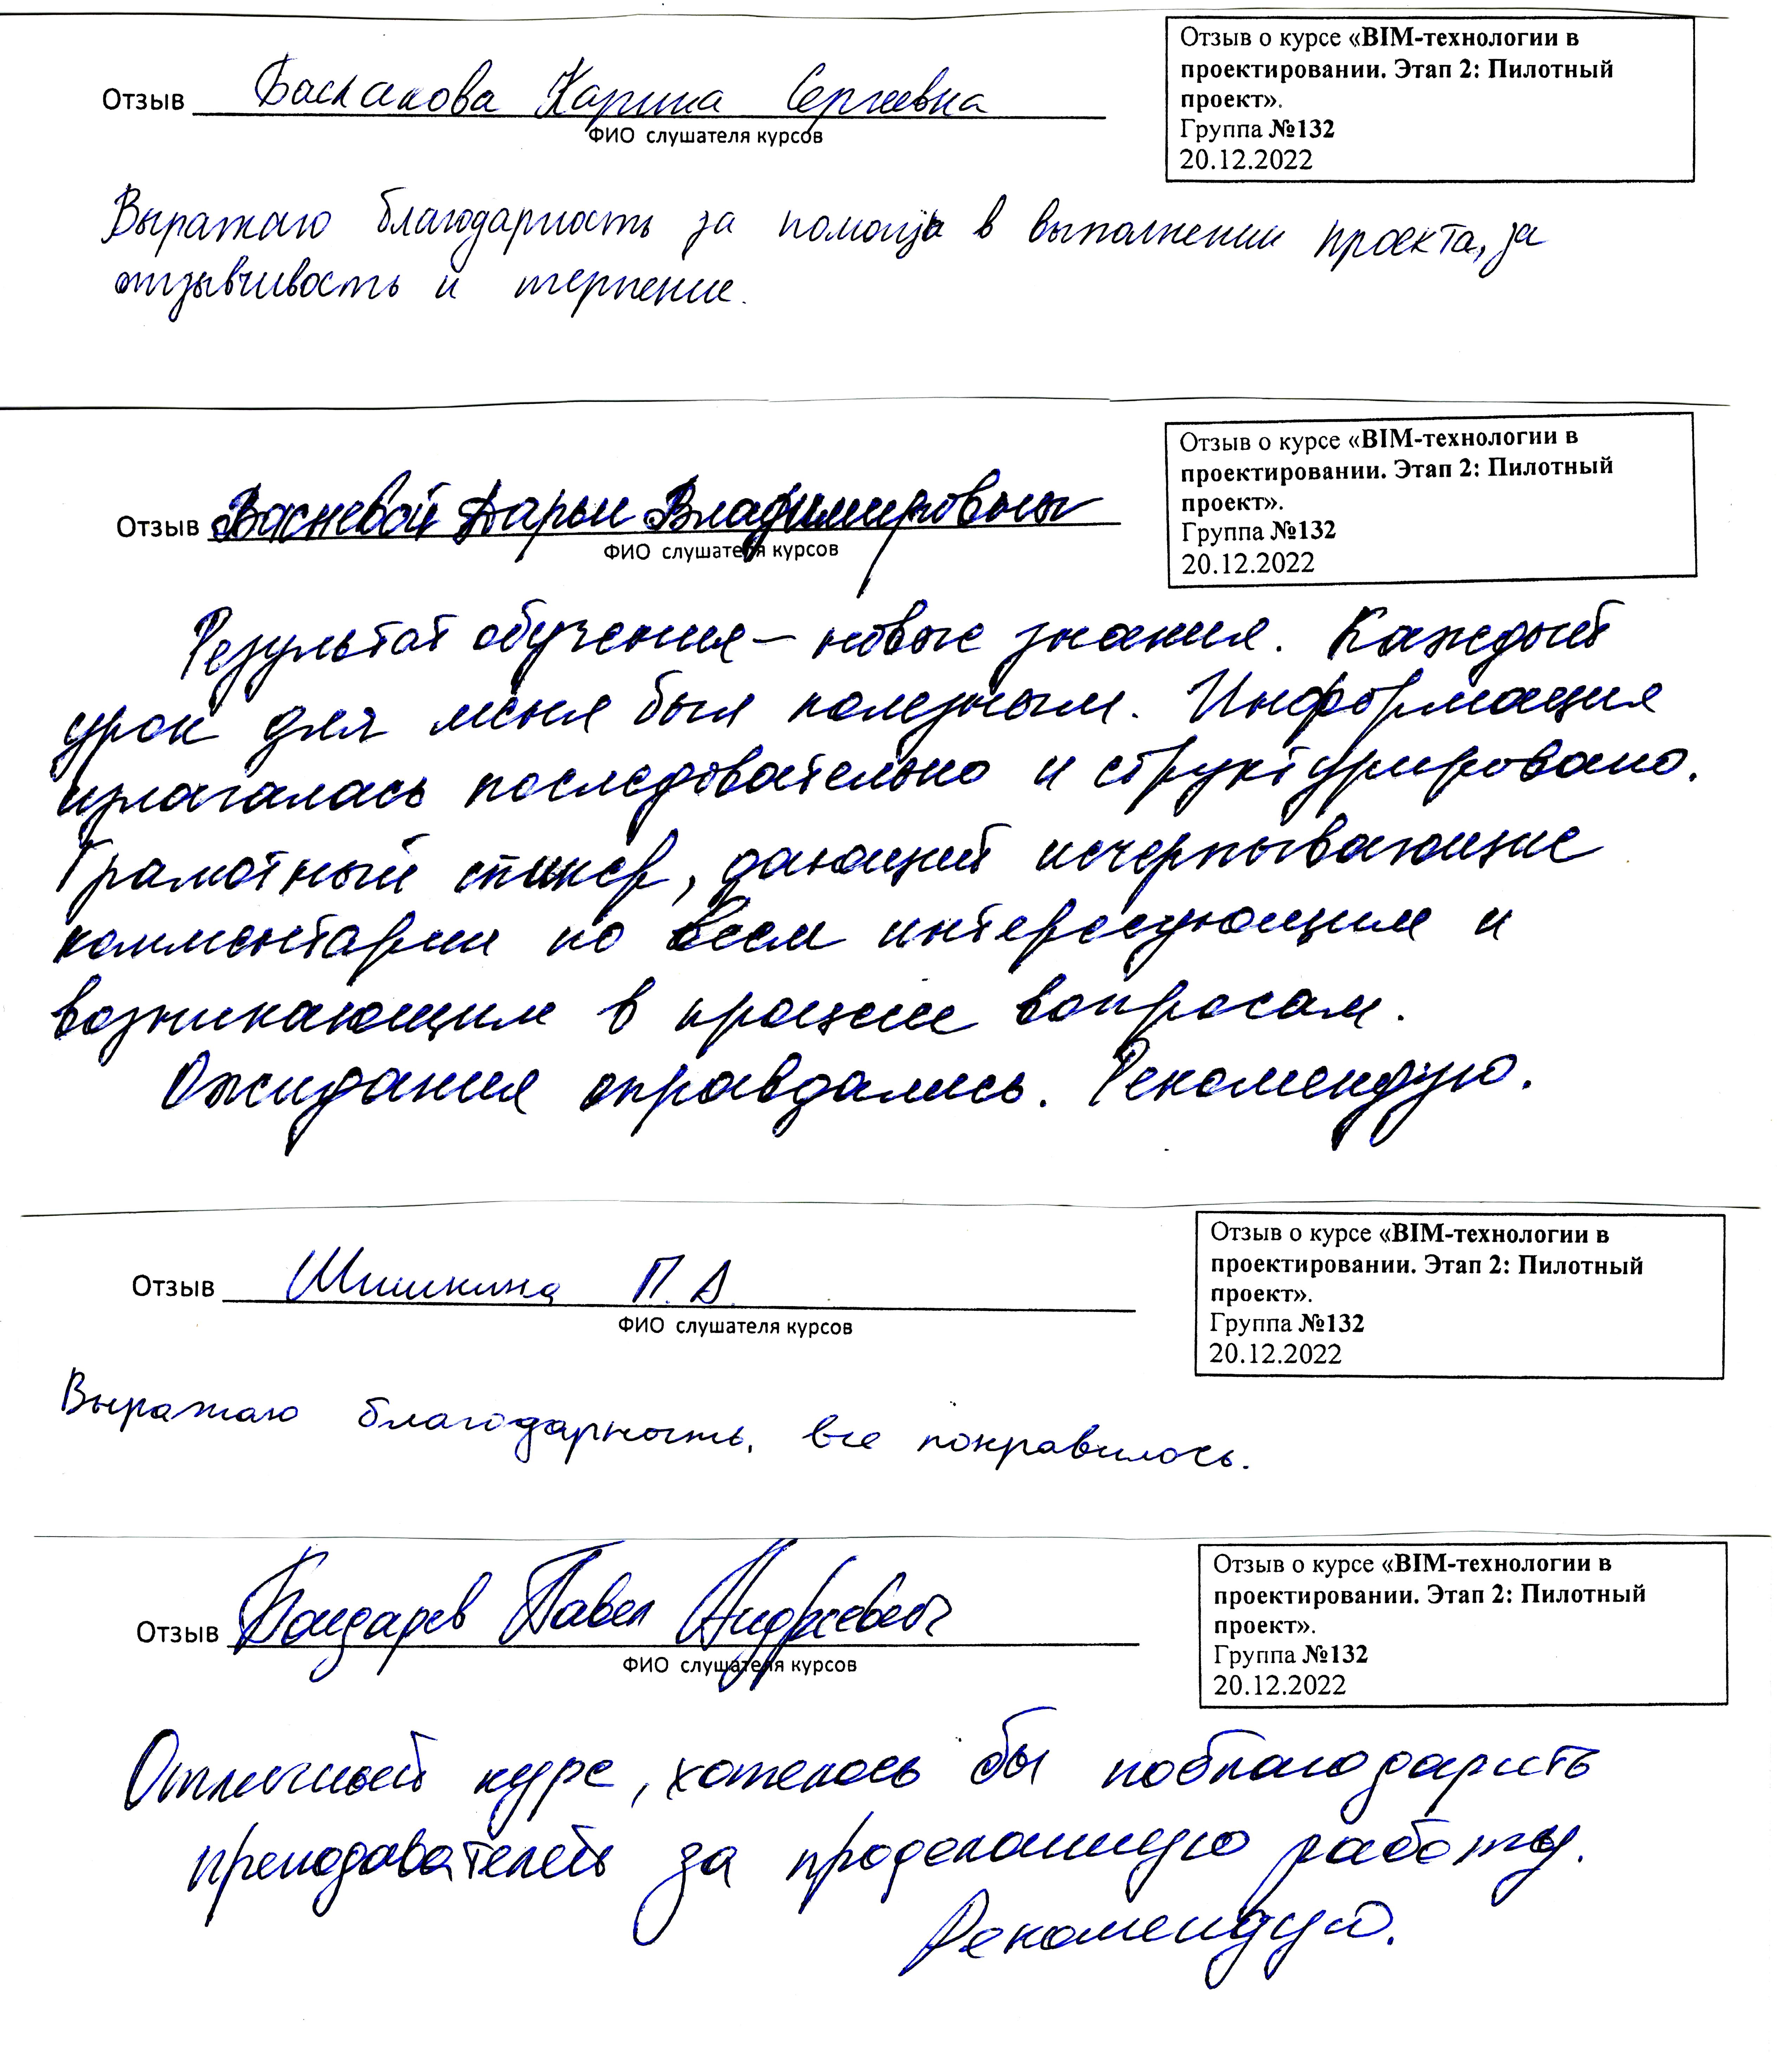 Отзыв о курсе «BIM-технологии в
проектировании. Этап 2: Пилотный
проект».
Группа №132
20.12.2022
Отзыв Баскакова Карина Сергеевна
ФИО слушателя курсов
Выражаю благодарность за помощь в выполнении проекта, за
отзывчивость и терпение.
Отзыв о курсе «BIM-технологии в
проектировании. Этап 2: Пилотный
проект».
Группа №132
20.12.2022
Отзыв Васневой Дарьи Владимировны
ФИО слушателя курсов
Результат обучения – новые знания. Каждый
урок для меня был полезным. Информация
излагалась последовательно и структурировано.
Грамотный спикер, дающий исчерпывающие
комментарии по всем интересующим и
возникающим в процессе вопросам.
Ожидания оправдались. Рекомендую.
Отзыв о курсе «BIM-технологии в
проектировании. Этап 2: Пилотный
проект».
Группа №132
20.12.2022
Отзыв Шишкина П. А.
ФИО слушателя курсов
Выражаю благодарность, все понравилось.
Отзыв о курсе «BIM-технологии в
проектировании. Этап 2: Пилотный
проект».
Группа №132
20.12.2022
Отзыв Бондарев Павел Андреевич
ФИО слушателя курсов
Отличный курс, хотелось бы поблагодарить
преподавателей за проделанную работу.
Рекомендую.